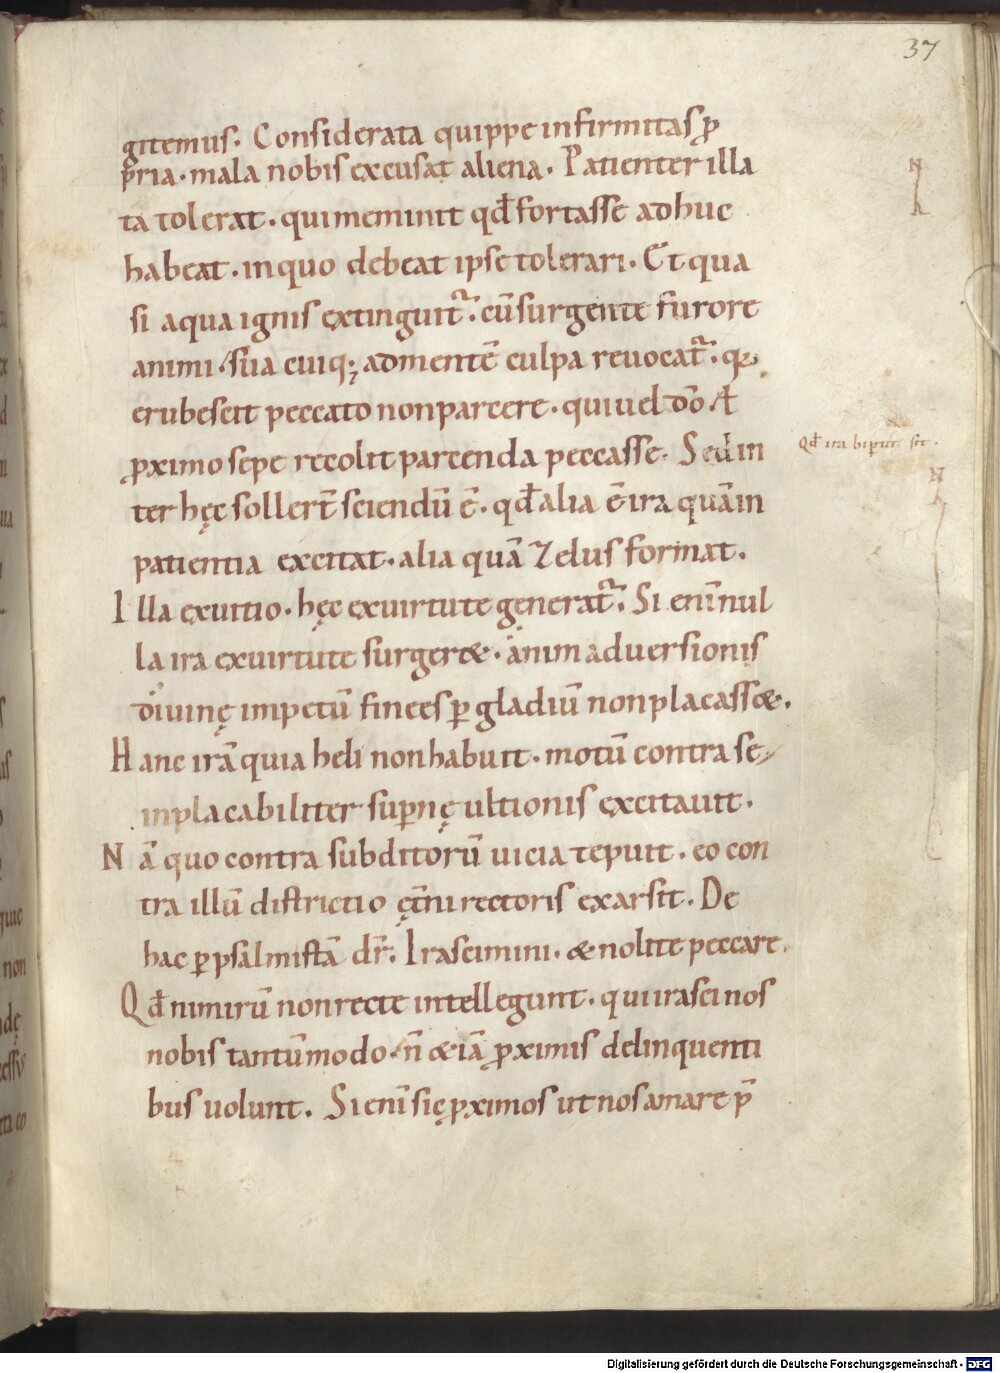 37
gitemus. Considerata quippe infirmitas ꝓ
pria. mala nobis excusat aliena. Patienter illa
ta tolerat. qui meminit qđ fortasse adhuc
habeat. in quo debeat ipse tolerari. Et qua
si aqua ignis extinguit᷑. cū surgente furore
animi. sua cuiq; ad mentē culpa reuocat᷑. q
erubescit peccato non parcere. qui uel dō ꝉ
ꝓximo sepe recolit parcenda peccasse. Sed in
ter hęc sollert̄ sciendū ē. qđ alia ē ira quā in
patientia excitat. alia quā Zelus format.
Illa ex uitio. hęc ex uirtute generat᷑. Si eni̅ nul
la ira ex uirtute surger&. animaduersionis
diuinę impetū finees ꝑ gladiū non placass&.
Hanc irā quia heli non habuit. motū contra se
inplacabiliter suꝑnę ultionis excitauit.
Nā quo contra subditorū uicia tepuit. eo con
tra illū districtio ęt̄ni rectoris exarsit. De
hac ꝑ psalmistā dr̄. Irascimini. & nolite peccare.
Qđ nimirū non recte intellegunt. qui irasci nos
nobis tantūmodo. n̄ &iā ꝓximis delinquenti
bus uolunt. Si eni̅ sic ꝓximos ut nos amare p̄
Qđ ira bip̄tit sit.
N
N
Digitalisierung gefördert durch die Deutsche Forschungsgemeinschaft - DFG